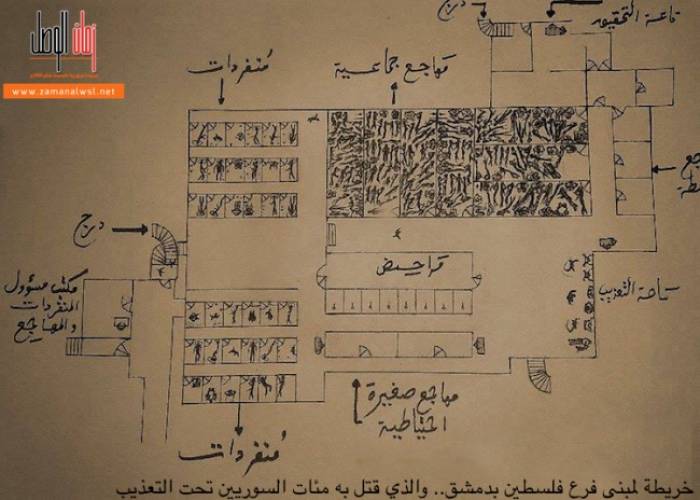 زمان الوصل
www.zamanalwsl.net
درج
قاعة التحقيق
منفردات
مهاجع جماعية
درج
مكتب مسؤول
المنفردات
والمهاجع
مراحيض
ساحة التعذيب
مهاجع صغيرة
احتياطية
منفردات
خريطة لمبنى فرع فلسطين بدمشق.. والذي قتل به مئات السوريين تحت التعذيب